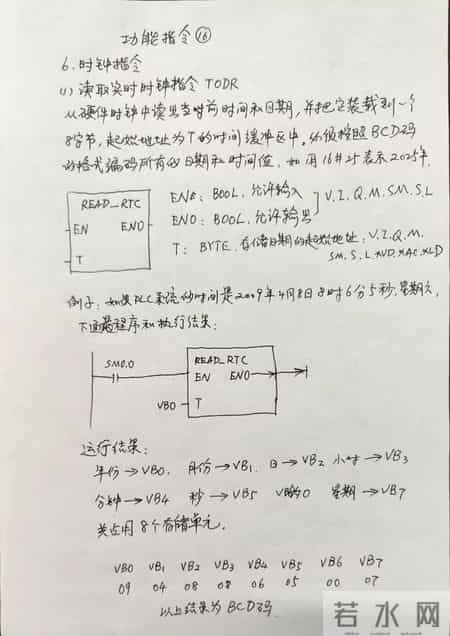 功能指令⑯
6.时钟指令
(1)读取实时时钟指令 TODR
从硬件时钟中读出当前时间和日期,并把它装载到一个
8字节,起始地址为T的时间缓冲区中。必须按照BCD码
的格式编码所有的日期和时间值,如用16#25表示2025年.
READ_RTC
EN ENO
T
EN: BOOL,允许输入
ENO: BOOL,允许输出
V.I.Q.M.SM.S.L
T: BYTE,存储日期的起始地址:V.I.Q.M.
SM.S.L.*VD.*AC.*LD
例子:如果PLC系统的时间是2009年4月8日8时6分5秒.星期六,
下面是程序和执行结果:
SM0.0
READ_RTC
EN ENO
VB0 T
运行结果:
年份→VB0, 月份→VB1. 日→VB2 小时→VB3
分钟→VB4 秒→VB5 0 星期→VB7
共占用8个存储单元.
VB0 VB1 VB2 VB3 VB4 VB5 VB6 VB7
09 04 08 08 06 05 00 07
以上结果为BCD码.
若水网